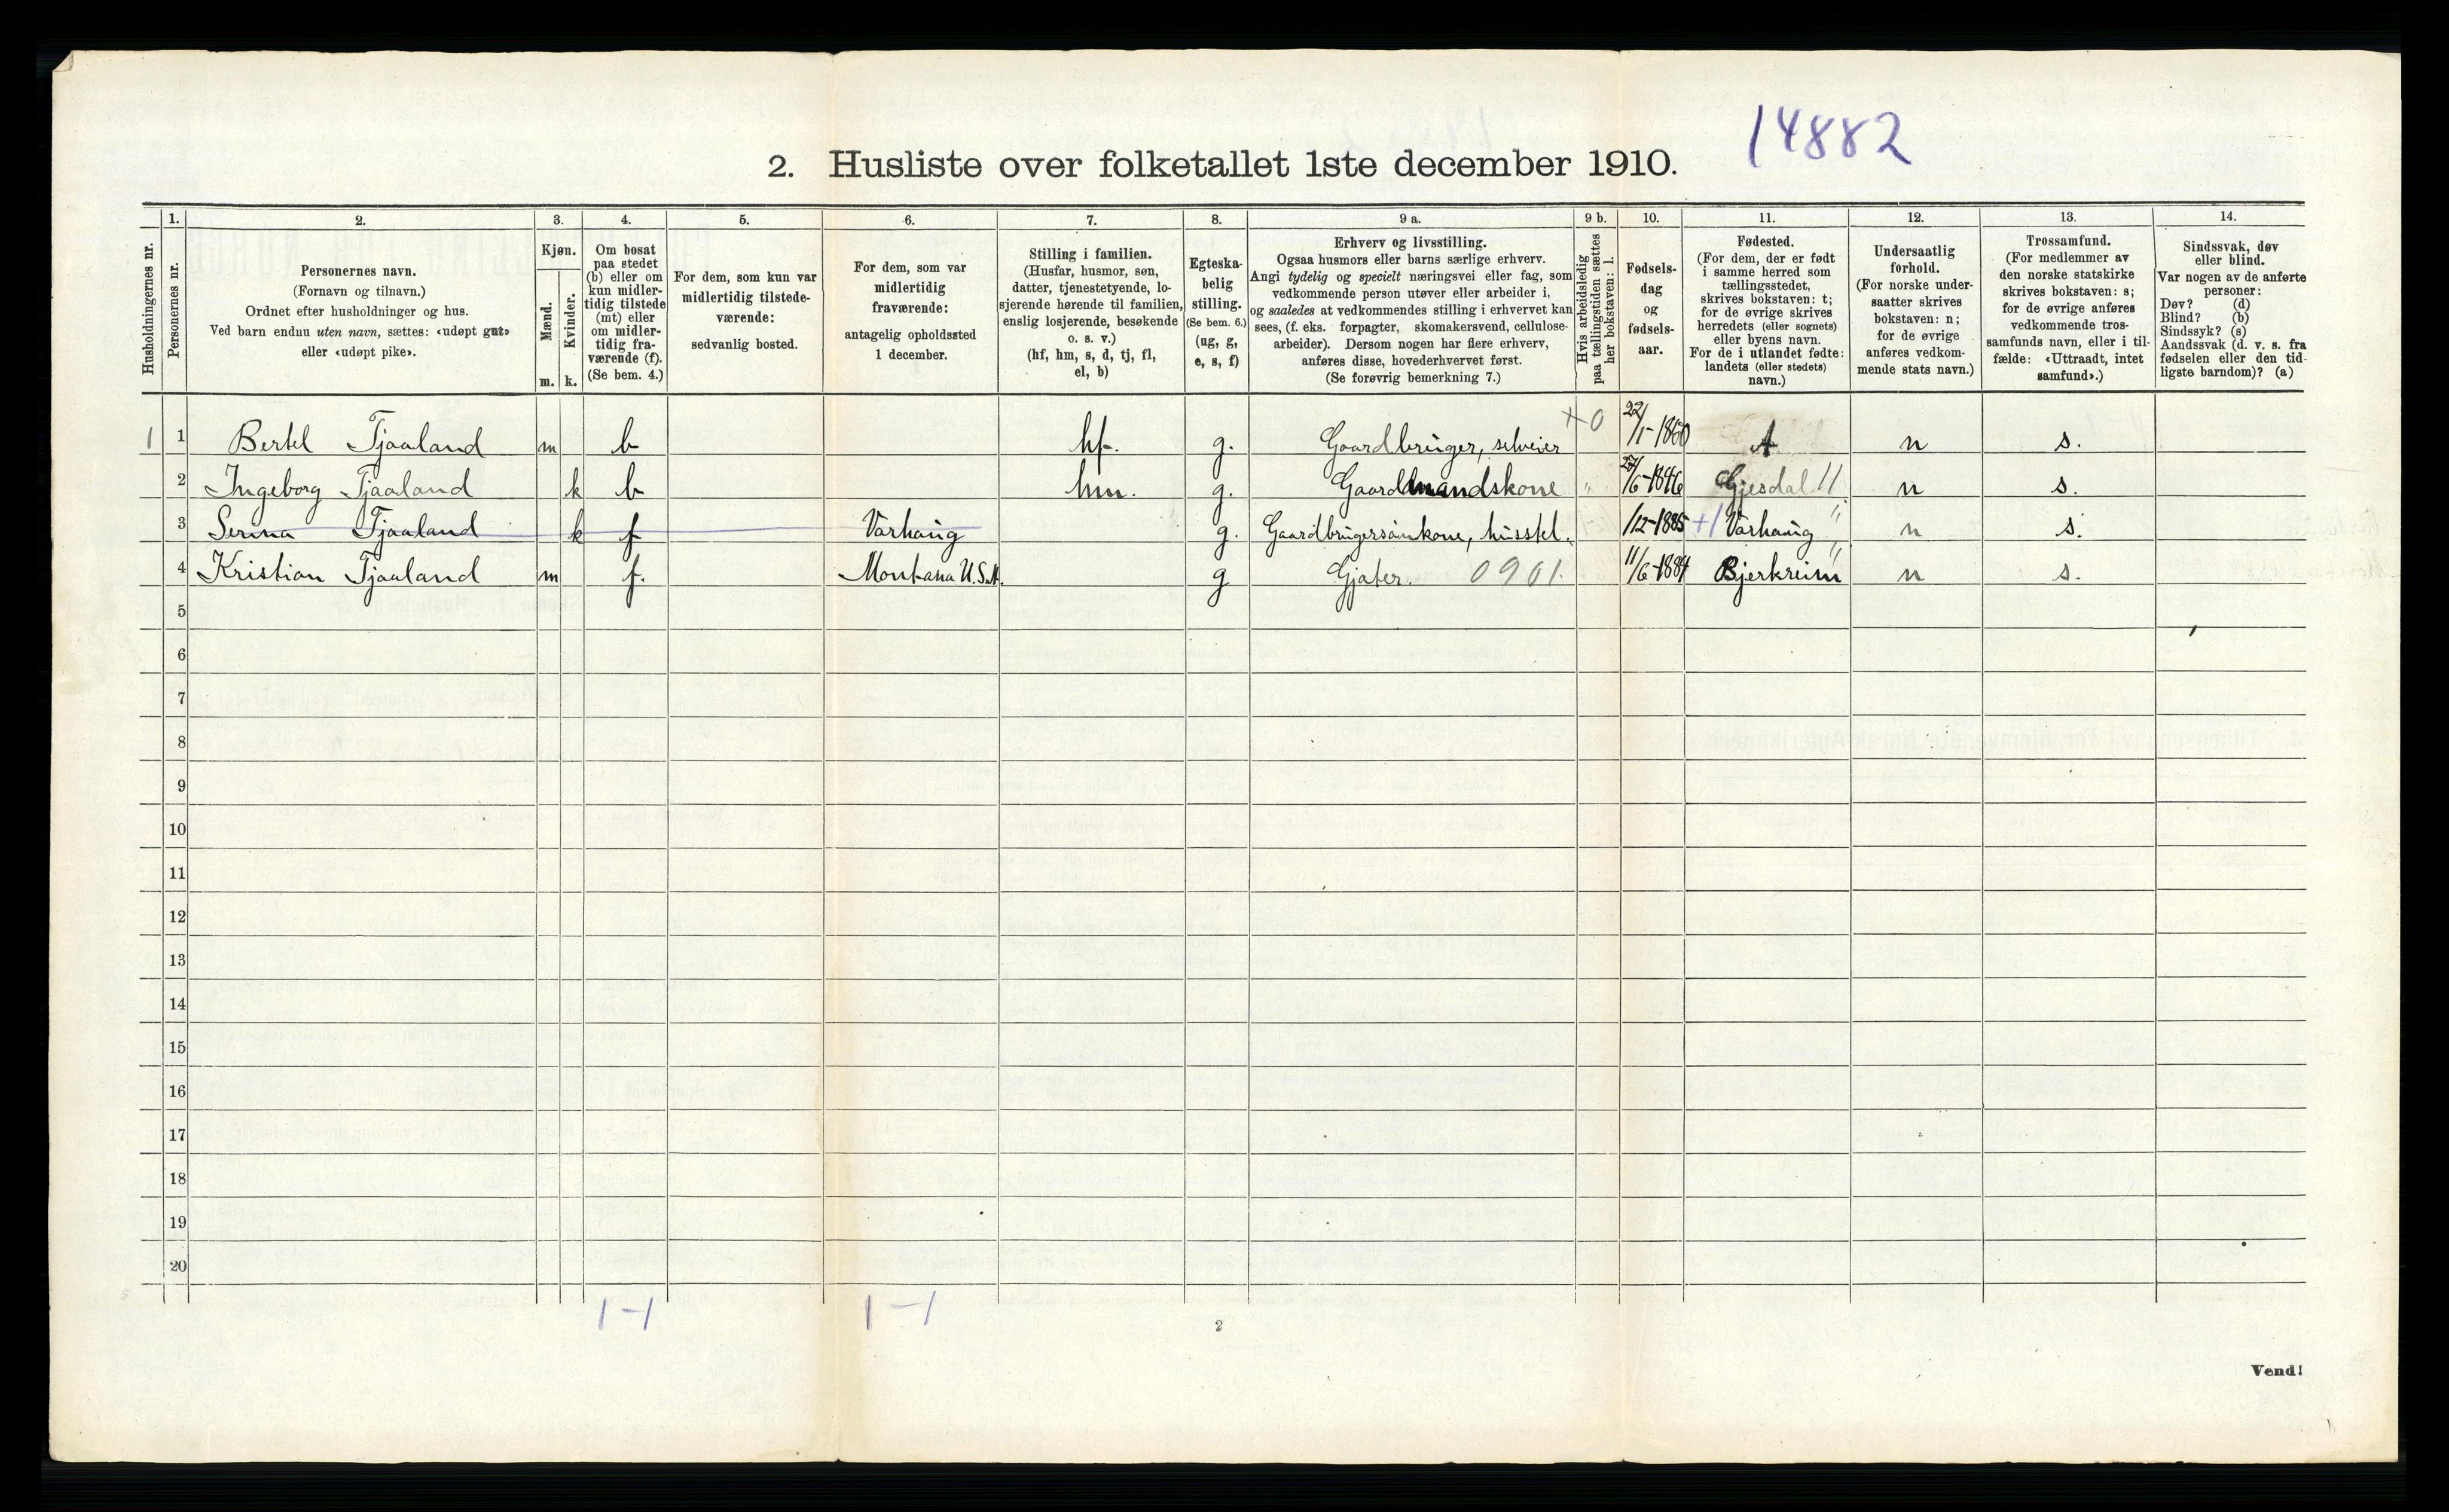 14882
2. Husliste over folketallet 1ste december 1910.
1. 2. 3. 4. 5. 6. 7. 8. 9 a. 9 b. 10. 11. 12. 13. 14.
Husholdningernes nr.
Personernes nr.
Personernes navn.
(Fornavn og tilnavn.)
Ordnet efter husholdninger og hus.
Ved barn endnu uten navn, sættes: «udøpt gut»
eller «udøpt pike».
Kjøn.
Mænd.
Kvinder.
m. k.
Om bosat
paa stedet
(b) eller om
kun midler-
tidig tilstede
(mt) eller
om midler-
tidig fra-
værende (f).
(Se bem. 4.)
For dem, som kun var
midlertidig tilstede-
værende:
sedvanlig bosted.
For dem, som var
midlertidig
fraværende:
antagelig opholdssted
1 december.
Stilling i familien.
(Husfar, husmor, søn,
datter, tjenestetyende, lo-
sjerende hørende til familien,
enslig losjerende, besøkende
o. s. v.)
(hf, hm, s, d, tj, fl,
el, b)
Egteska-
belig
stilling.
(Se bem. 6.)
(ug, g,
e, s, f)
Erhverv og livsstilling.
Ogsaa husmors eller barns særlige erhverv.
Angi tydelig og specielt næringsvei eller fag, som
vedkommende person utøver eller arbeider i,
og saaledes at vedkommendes stilling i erhvervet kan
sees, (f. eks. forpagter, skomakersvend, cellulose-
arbeider). Dersom nogen har flere erhverv,
anføres disse, hovederhvervet først.
(Se forøvrig bemerkning 7.)
Hvis arbeidsledig
paa tællingstiden sættes
her bokstaven: l.
Fødsels-
dag
og
fødsels-
aar.
Fødested.
(For dem, der er født
i samme herred som
tællingsstedet,
skrives bokstaven: t;
for de øvrige skrives
herredets (eller sognets)
eller byens navn.
For de i utlandet fødte:
landets (eller stedets)
navn.)
Undersaatlig
forhold.
(For norske under-
saatter skrives
bokstaven: n;
for de øvrige
anføres vedkom-
mende stats navn.)
Trossamfund.
(For medlemmer av
den norske statskirke
skrives bokstaven: s;
for de øvrige anføres
vedkommende tros-
samfunds navn, eller i til-
fælde: «Uttraadt, intet
samfund».)
Sindssvak, døv
eller blind.
Var nogen av de anførte
personer:
Døv? (d)
Blind? (b)
Sindssyk? (s)
Aandssvak (d. v. s. fra
fødselen eller den tid-
ligste barndom)? (a)
1 1 Bertel Tjaaland m b hf. g. Gaardbruger, selveier +0 22/1-1860 n s.
2 Ingeborg Tjaaland k b hm. g. Gaardmandskone " 27/6-1846 Gjesdal 11 n s.
3 Serina Tjaaland k f Varhaug g. Gaardbrugersönkone, husstel. 1/12-1885 +1 Varhaug " n s.
4 Kristian Tjaaland m f. Montana U.S.A. g Gjæter. 0901. 11/6-1884 Bjerkreim " n s.
5
6
7
8
9
10
11
12
13
14
15
16
17
18
19
20
1-1 1-1
2
Vend!